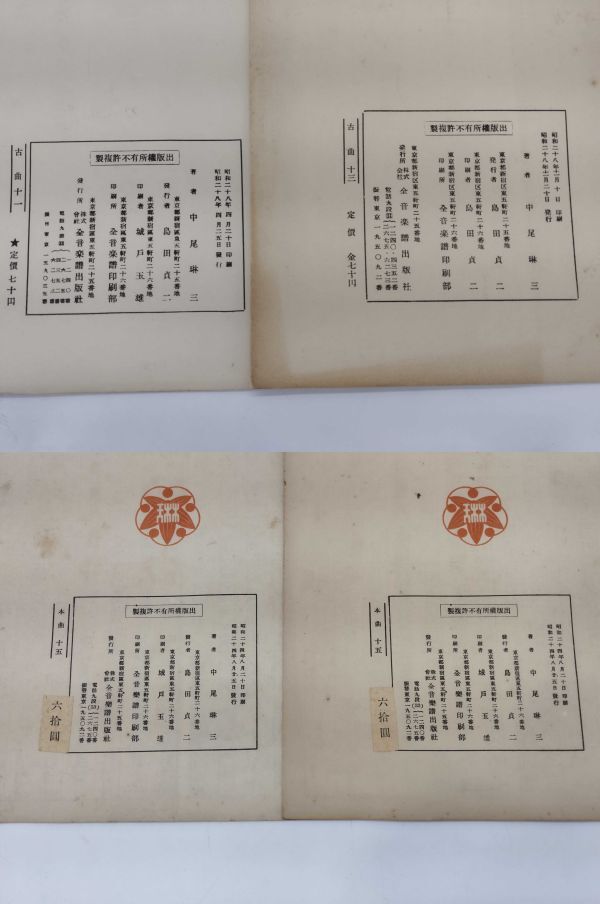 出版權所有不許複製
昭和二十八年四月二十日印刷
昭和二十八年四月二五日發行
著者 中尾琳三
東京都新宿區東五軒町二十五番地
發行者 島田貞二
東京都新宿區東五軒町二十六番地
印刷者 城戸玉雄
東京都新宿區東五軒町二十六番地
印刷所 全音楽譜印刷部
東京都新宿區東五軒町二十五番地
發行所 株式会社 全音楽譜出版社
古曲十一
★定價七十円
出版權所有不許複製
昭和二十八年十二月十日印刷
昭和二十八年十二月二十日發行
著者 中尾琳三
東京都新宿区東五軒町二十五番地
発行者 島田貞二
東京都新宿区東五軒町二十六番地
印刷者 島田貞二
東京都新宿区東五軒町二十六番地
印刷所 全音楽譜印刷部
東京都新宿区東五軒町二十五番地
発行所 株式会社 全音楽譜出版社
振替東京一九五〇九二番
古曲十三
定價 金七十円
出版權所有不許複製
昭和二十四年八月二十日印刷
昭和二十四年八月廿五日發行
著者 中尾琳三
東京都新宿區東五軒町二十六番地
發行者 島田貞二
東京都新宿區東五軒町二十六番地
印刷者 城戸玉雄
東京都新宿區東五軒町二十六番地
印刷所 全音樂譜印刷部
東京都新宿區東五軒町二十五番地
發行所 株式会社 全音樂譜出版社
振替東京一九五〇九二番
本曲 十五
六拾圓
出版權所有不許複製
昭和二十四年八月二十日印刷
昭和二十四年八月廿五日發行
著者 中尾琳三
東京都新宿區東五軒町二十六番地
發行者 島田貞二
東京都新宿區東五軒町二十六番地
印刷者 城戸玉雄
東京都新宿區東五軒町二十六番地
印刷所 全音樂譜印刷部
東京都新宿區東五軒町二十五番地
發行所 株式会社 全音樂譜出版社
振替東京一九五〇九二番
本曲 十五
六拾圓